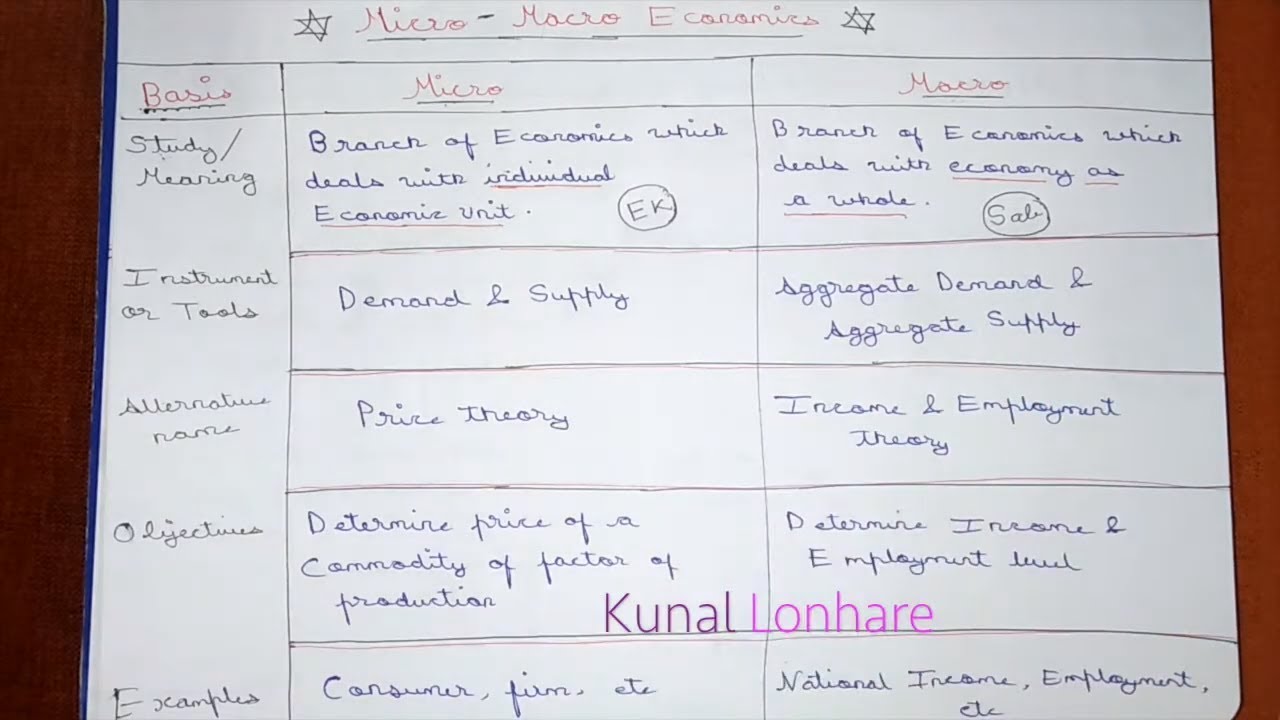 Micro - Macro Economics
Basis
Micro
Macro
Study/
Meaning
Branch of Economics which
deals with individual
Economic Unit.
EK
Branch of Economics which
deals with economy as
a whole.
Sab
Instrument
or Tools
Demand & Supply
Aggregate Demand &
Aggregate Supply
Alternative
name
Price theory
Income & Employment
theory
Objectives
Determine price of a
Commodity of factor of
production
Determine Income &
Employment level
Kunal Lonhare
Examples
Consumer, firm, etc
National Income, Employment,
etc